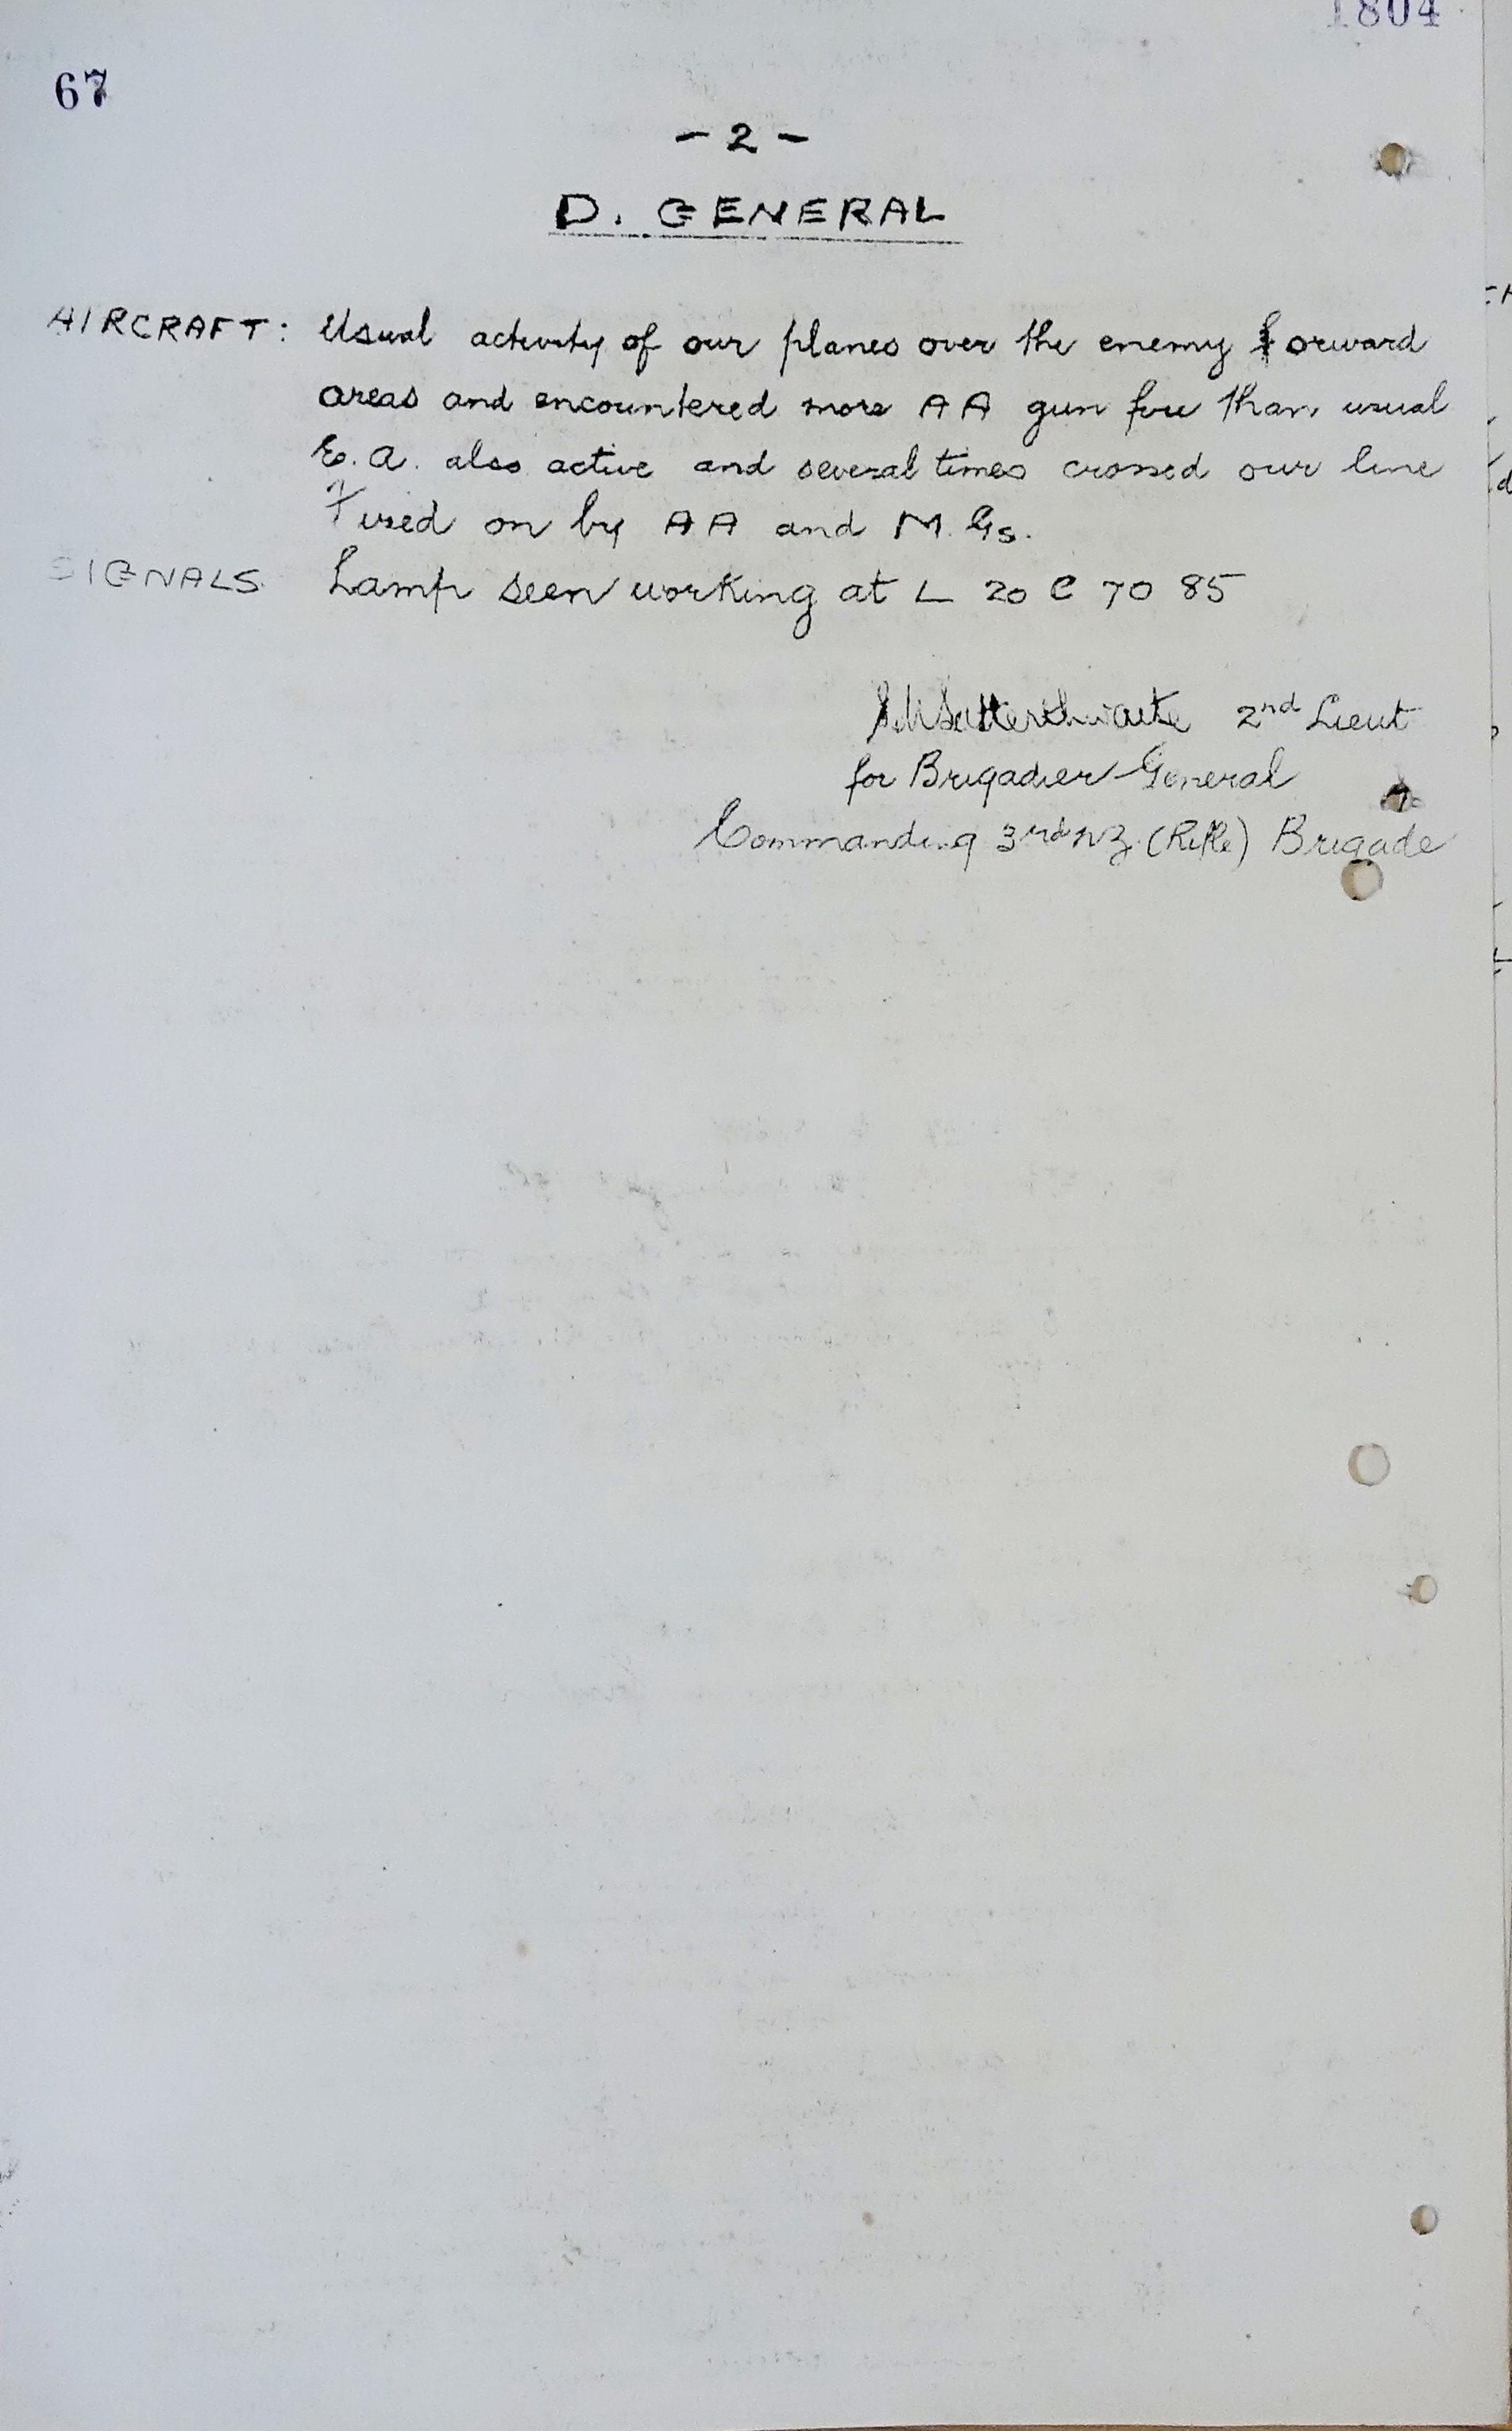 1804
67
- 2 -
D. GENERAL
AIRCRAFT: Usual activity of our planes over the enemy forward
areas and encountered more AA gun fire than usual
E.A. also active and several times crossed our line
Fired on by AA and M.Gs.
SIGNALS Lamp seen working at L 20 C 70 85
Satterthwaite 2nd Lieut
for Brigadier General
Commanding 3rd NZ. (Rifle) Brigade